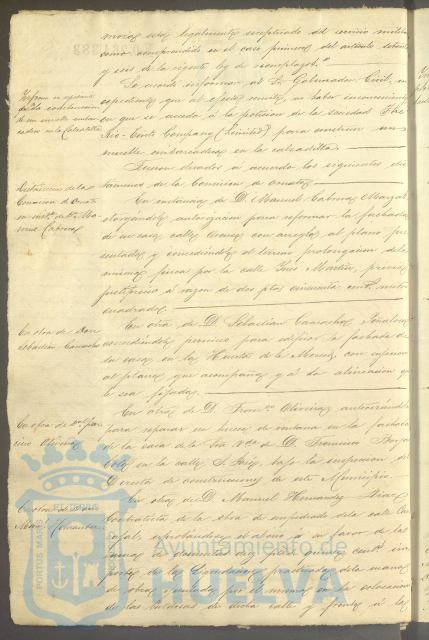 mozos está legalmente exceptuado del servicio militar
como comprendido en el caso primero del artículo setenta
y seis de la vigente ley de reemplazos."
Se acordó informar al Sr. Gobernador Civil, en
expediente que al efecto remite, no haber inconveniente
en que se acceda á la petición de la sociedad The
Rio-Tinto Company (limited) para construir un
muelle embarcadero en la calzadilla.
Fueron elevados á acuerdo los siguientes dic-
támenes de la Comisión de ornato
En instancia de D. Manuel Cabrera
otorgándole autorización para reformar la fachada
de su casa, calle con arreglo al plano pre-
sentado y concediéndole el terreno prolongación de la
misma finca por la calle Martín, previo
justiprecio á razón de dos ptas cincuenta cents. metro
cuadrado
En otra de D. Sebastián Camacho
concediéndole permiso para edificar la fachada de
su casa, en las Huertas de la Merced, con sujeción
al plano que acompaña y á la alineación que
le sea fijada.
En otra de D. Franco. Oliveira, autorizándole
para reparar un hueco de ventana en la fachada
de la casa de la Sra. Vda. de D. Francisco
en la calle S. José, bajo la inspección del
Director de construcciones de este Municipio.
En otra de D. Manuel Hernandez
Contratista de la obra de empedrado de la calle
aprobándose el abono á su favor de las
sumas de
de la liquidación practicada de la mano
de obra ejecutada por el mismo en la colocación
de las baldosas de dicha calle y frente á la
Informe en expediente
sobre construcción
de un muelle embar-
cadero en la Calzadilla
Dictámenes de la
Comisión de Ornato
en insta. de D. Ma-
nuel Cabrera
En otra de Don
Sebastián Camacho
En otra de Don Fran-
cisco Oliveira
En otra de Don
Man. Hernandez
PORTUS MARIS
Ayuntamiento de
HUELVA